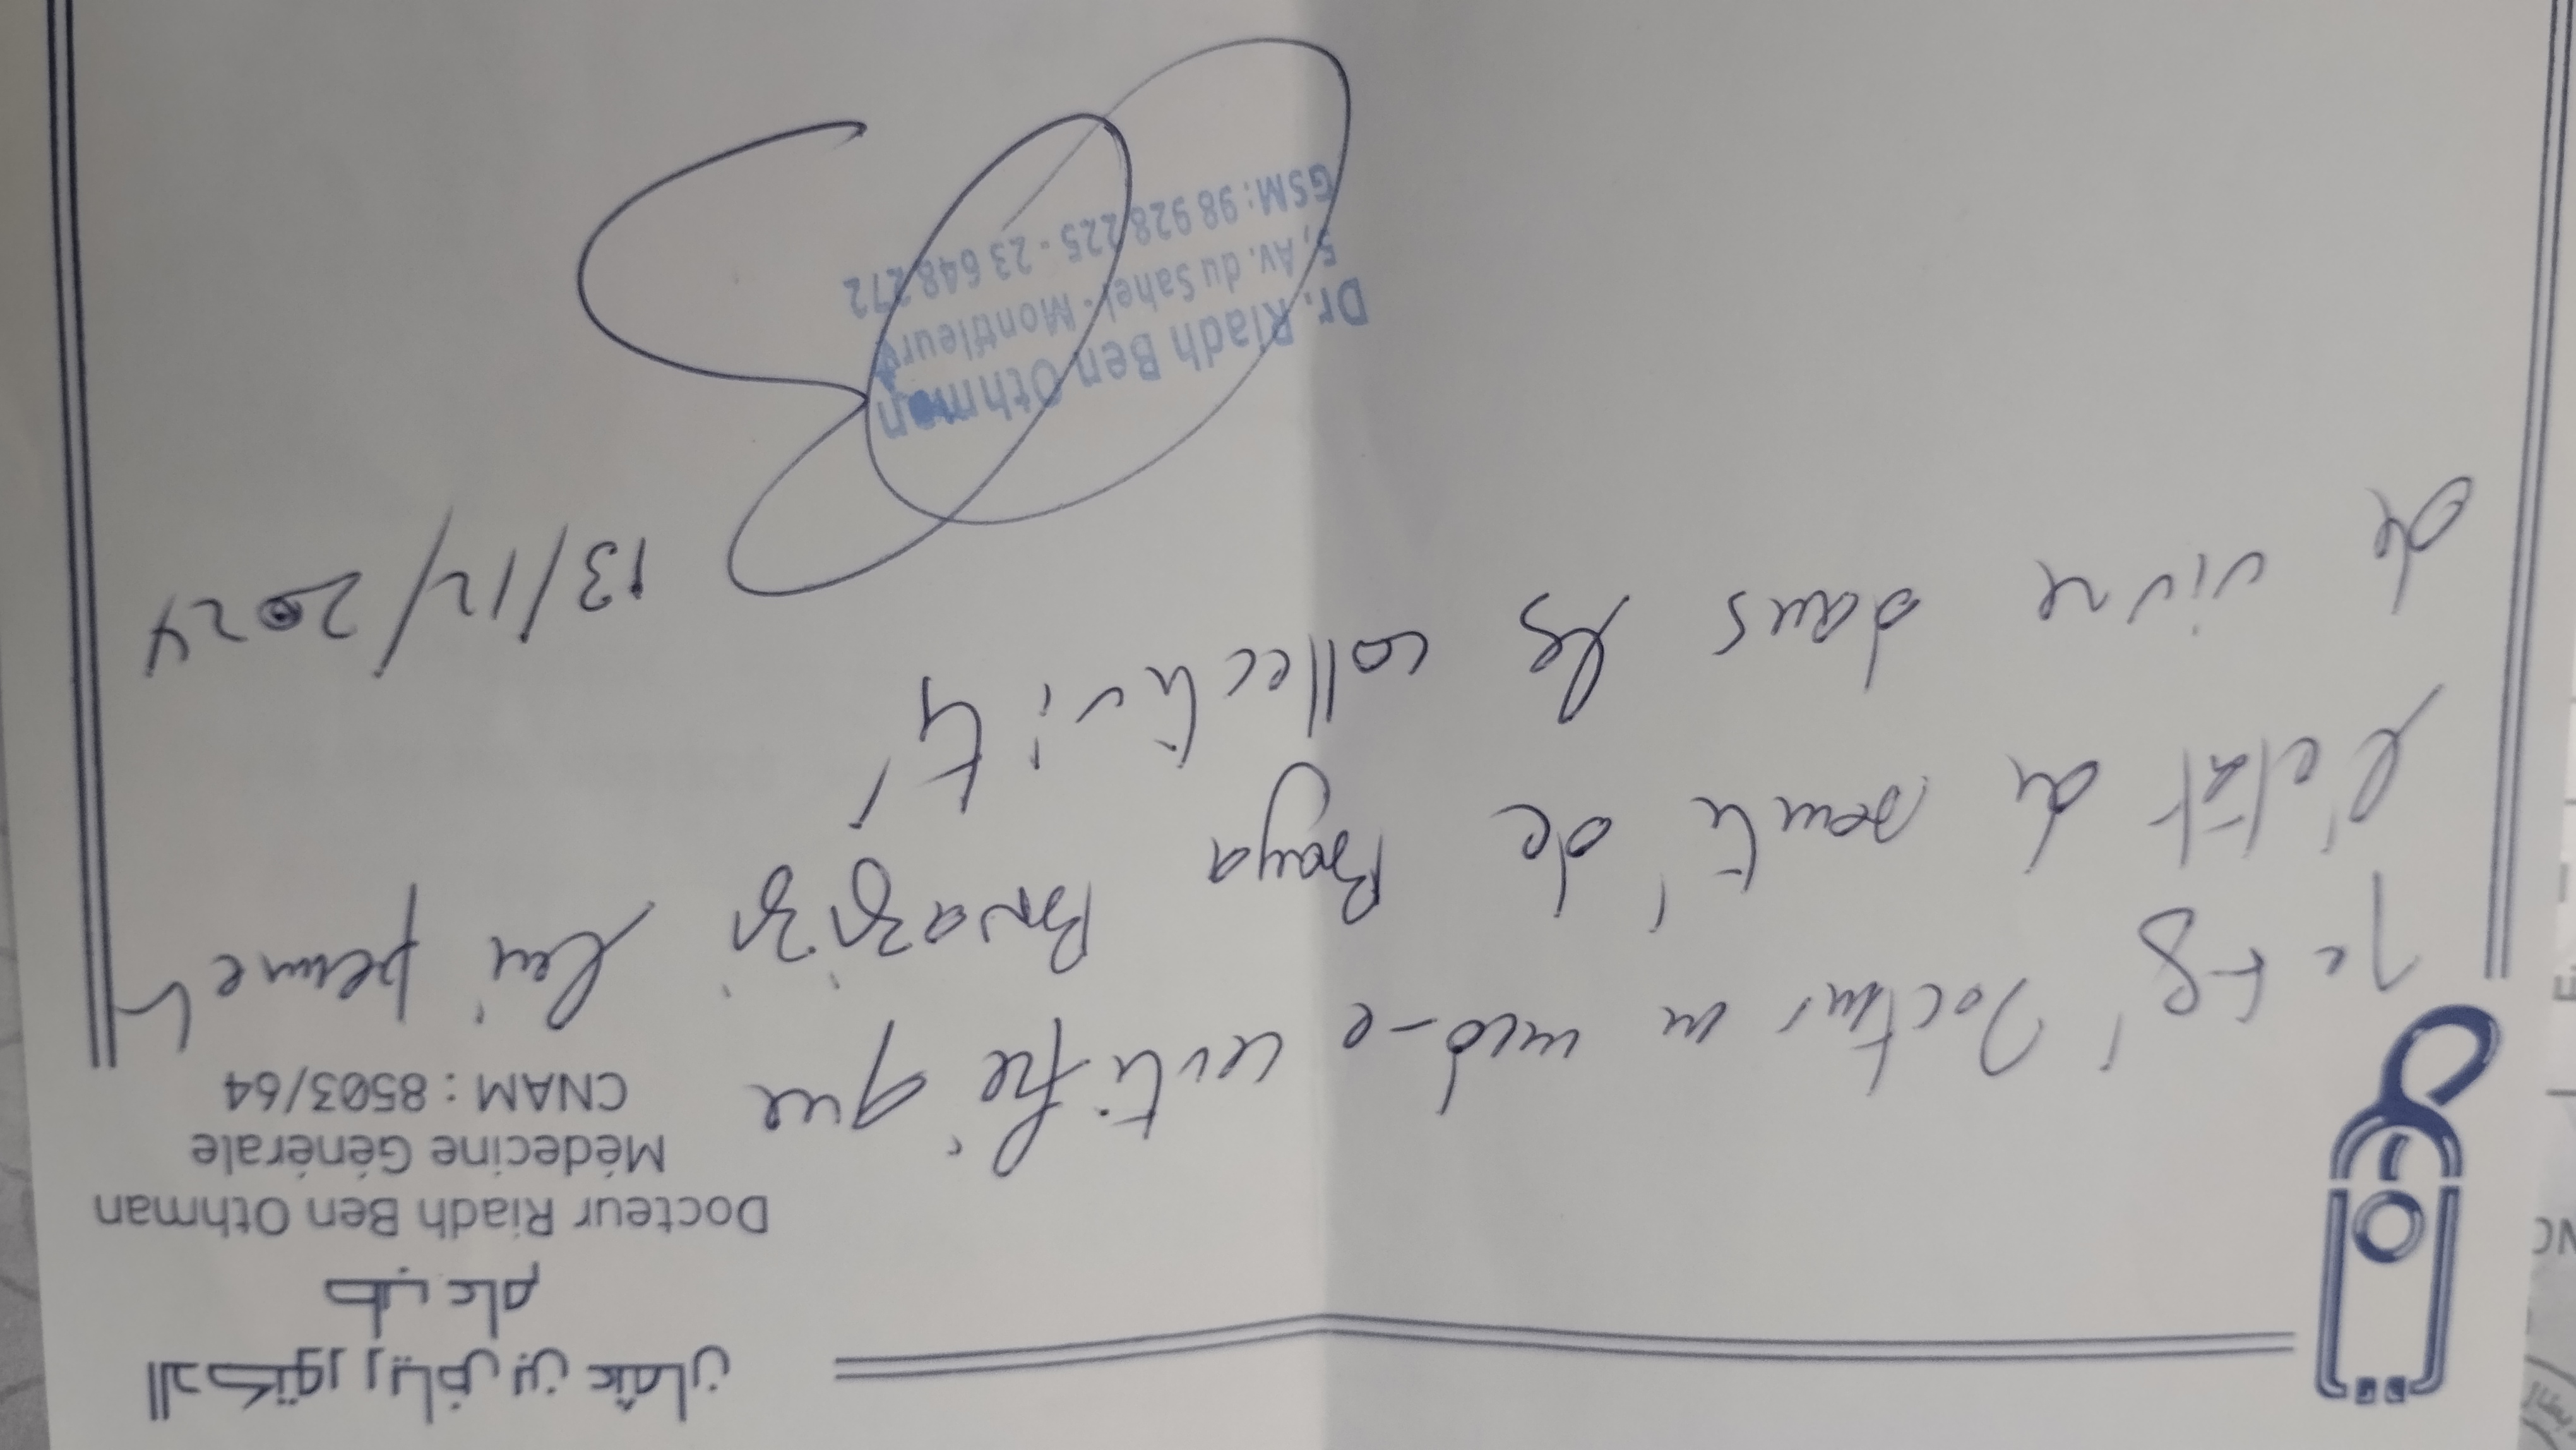 الدكتور رياض بن عثمان
طب عام
Docteur Riadh Ben Othman
Médecine Générale
CNAM : 8503/64
Je Docteur en med-e certifie que
l'état de santé de Baya Bnazizi lui permet
de vivre dans les collectivités
13/12/2024
Dr. Riadh Ben Othman
5, Av. du Sahel - Montfleury
GSM: 98 928 225 - 23 648 272